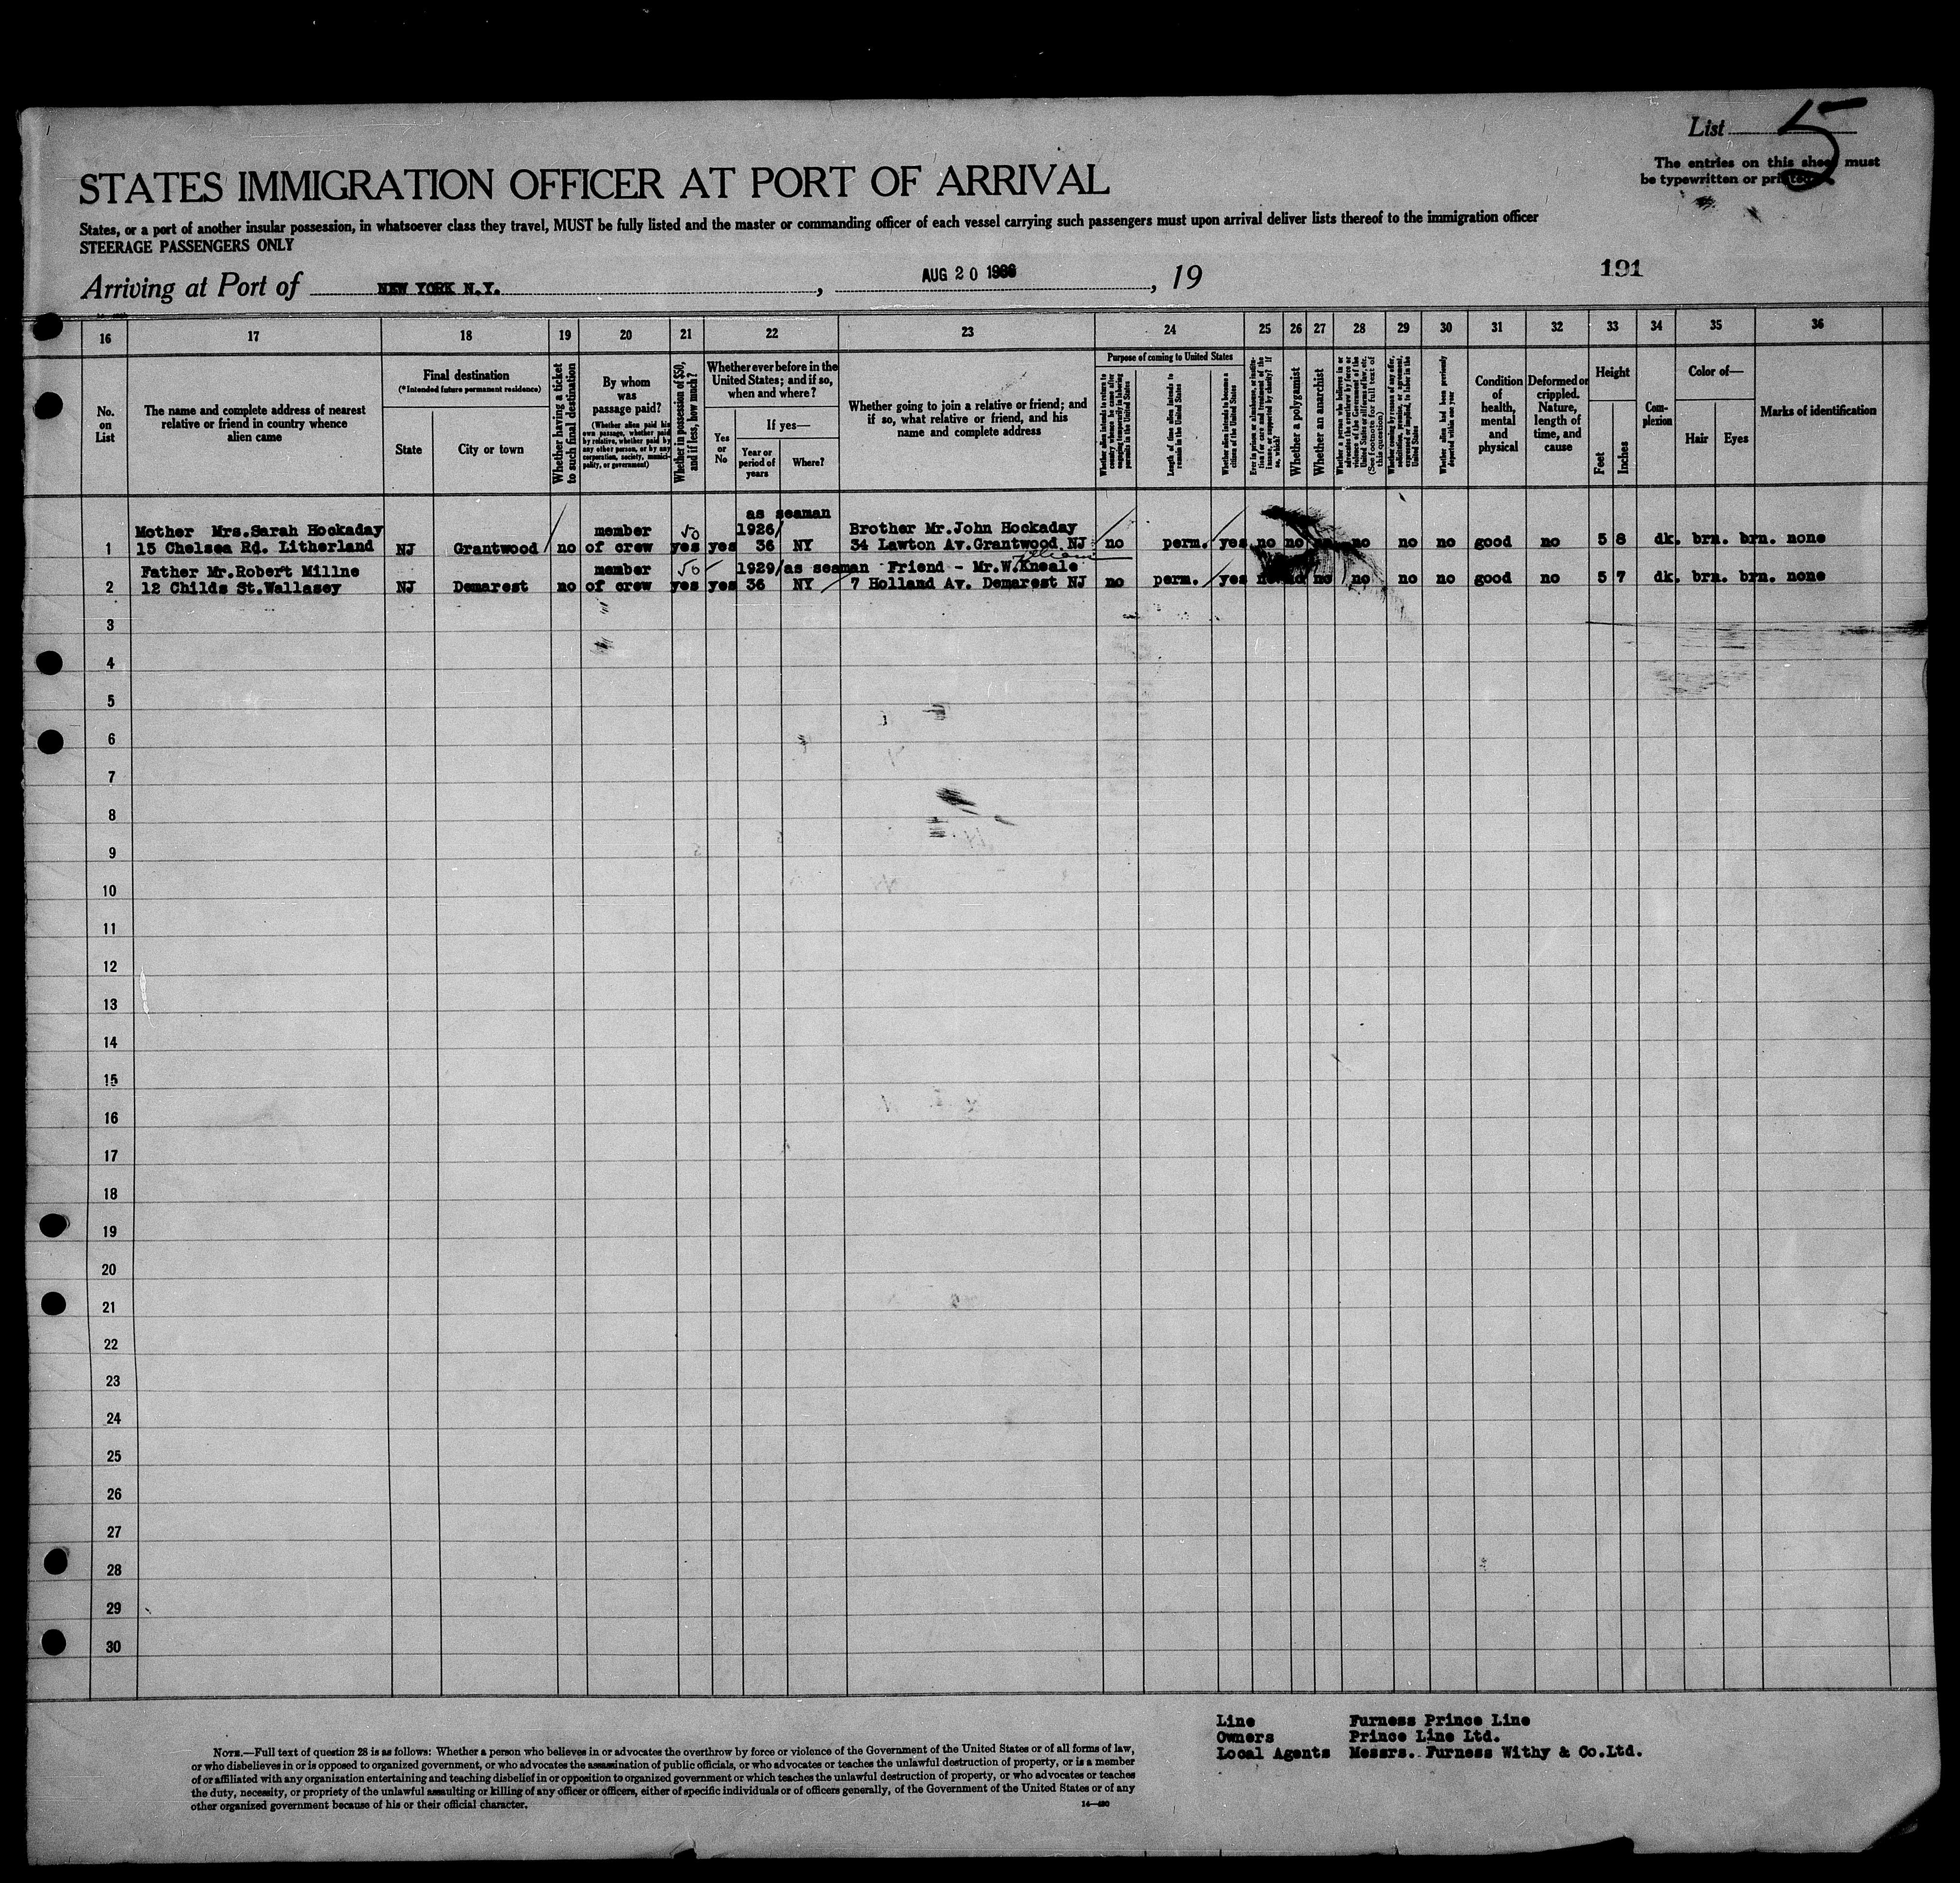 List 5
The entries on this sheet must
be typewritten or printed
STATES IMMIGRATION OFFICER AT PORT OF ARRIVAL
States, or a port of another insular possession, in whatsoever class they travel, MUST be fully listed and the master or commanding officer of each vessel carrying such passengers must upon arrival deliver lists thereof to the immigration officer
STEERAGE PASSENGERS ONLY
Arriving at Port of NEW YORK N.Y. , AUG 20 , 19
191
16 17 18 19 20 21 22 23 24 25 26 27 28 29 30 31 32 33 34 35 36
No.
on
List
The name and complete address of nearest
relative or friend in country whence
alien came
Final destination
(*Intended future permanent residence)
State
City or town
Whether having a ticket
to such final destination
By whom
was
passage paid?
(Whether alien paid his
own passage, whether paid
by relative, whether paid by
any other person, or by any
corporation, society, munici-
pality, or government)
Whether in possession of $50,
and if less, how much?
Whether ever before in the
United States; and if so,
when and where?
Yes
or
No
If yes—
Year or
period of
years
Where?
Whether going to join a relative or friend; and
if so, what relative or friend, and his
name and complete address
Purpose of coming to United States
Whether alien intends to return to
country whence he came after
engaging temporarily in laboring
pursuits in the United States
Length of time alien intends to
remain in the United States
Whether alien intends to become a
citizen of the United States
Ever in prison or almshouse, or institu-
tion for care and treatment of the
insane, or supported by charity? If
so, which?
Whether a polygamist
Whether an anarchist
Whether a person who believes in or
advocates the overthrow by force or
violence of the Government of the
United States or all forms of law, etc.
(See footnote for full text of
this question)
Whether coming by reason of any offer,
solicitation, promise, or agreement,
expressed or implied, to labor in the
United States
Whether alien had been previously
deported within one year
Condition
of
health,
mental
and
physical
Deformed or
crippled.
Nature,
length of
time, and
cause
Height
Feet
Inches
Com-
plexion
Color of—
Hair
Eyes
Marks of identification
as seaman
Mother Mrs.Sarah Hockaday member 50 1926/ Brother Mr.John Hockaday
1 15 Chelsea Rd. Litherland NJ Grantwood no of crew yes yes 36 NY 34 Lawton Av.Grantwood NJ no perm. yes no no no no no no good no 5 8 dk. brn. brn. none
Father Mr.Robert Millne member 50 1929/as seaman Friend - Mr.W.Kneale
2 12 Childs St.Wallasey NJ Demarest no of crew yes yes 36 NY 7 Holland Av. Demarest NJ no perm. yes no no no no no no good no 5 7 dk. brn. brn. none
3
4
5
6
7
8
9
10
11
12
13
14
15
16
17
18
19
20
21
22
23
24
25
26
27
28
29
30
Line Furness Prince Line
Owners Prince Line Ltd.
Local Agents Messrs. Furness Withy & Co.Ltd.
NOTE.—Full text of question 28 is as follows: Whether a person who believes in or advocates the overthrow by force or violence of the Government of the United States or of all forms of law,
or who disbelieves in or is opposed to organized government, or who advocates the assassination of public officials, or who advocates or teaches the unlawful destruction of property, or is a member
of or affiliated with any organization entertaining and teaching disbelief in or opposition to organized government or which teaches the unlawful destruction of property, or who advocates or teaches
the duty, necessity, or propriety of the unlawful assaulting or killing of any officer or officers, either of specific individuals or of officers generally, of the Government of the United States or of any
other organized government because of his or their official character.
14—430